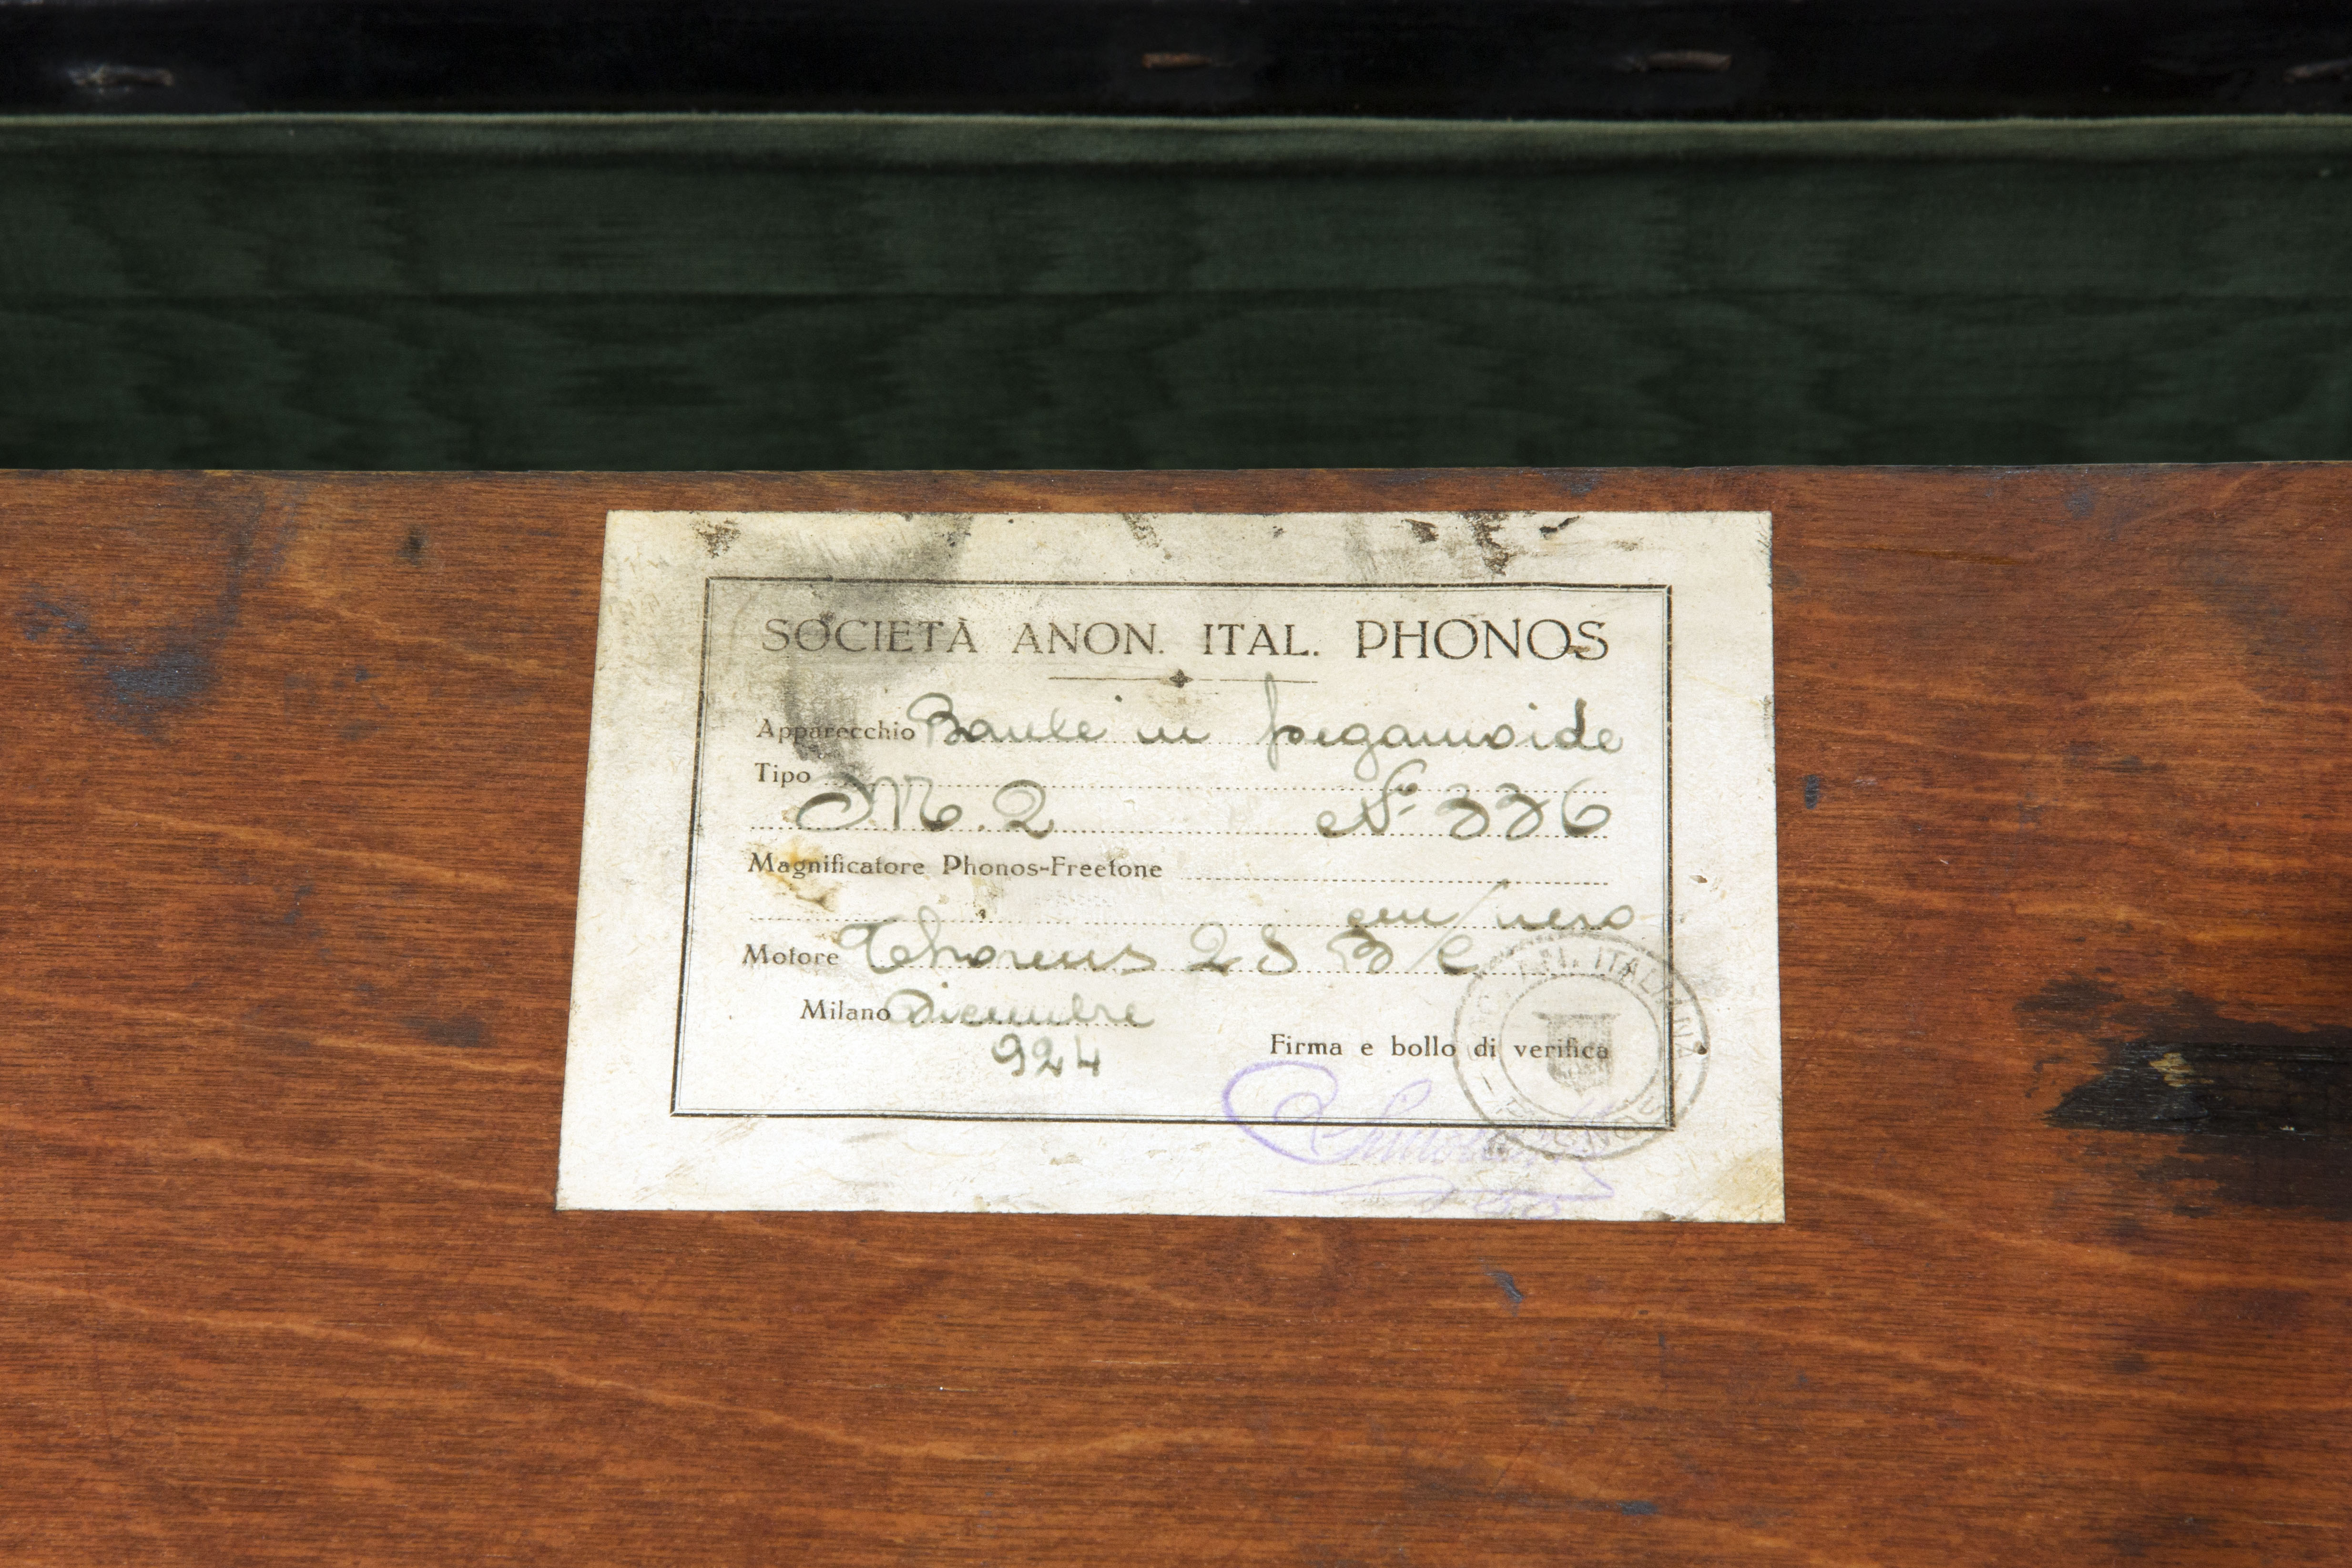 SOCIETÀ ANON. ITAL. PHONOS
Apparecchio Baule in pegamoide
Tipo
M. 2 No 336
Magnificatore Phonos-Freetone
nero
Motore Thorens 2 S B/C
Milano Dicembre
924
Firma e bollo di verifica